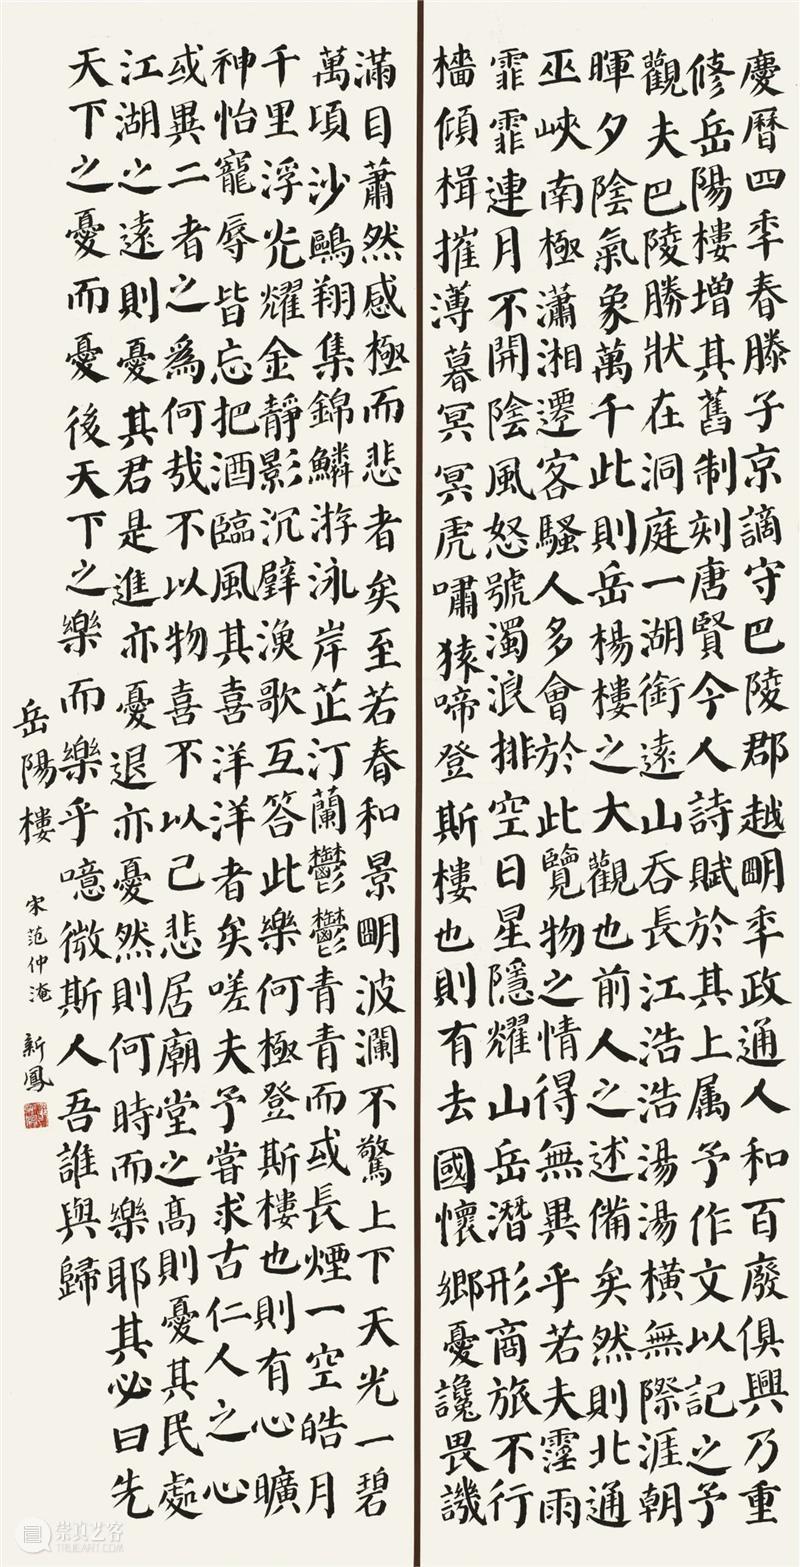 慶曆四年春滕子京謫守巴陵郡越明年政通人和百廢俱興乃重
修岳陽樓增其舊制刻唐賢今人詩賦於其上属予作文以記之予
觀夫巴陵勝狀在洞庭一湖銜遠山吞長江浩浩湯湯橫無際涯朝
暉夕陰氣象萬千此則岳楊樓之大觀也前人之述備矣然則北通
巫峽南極瀟湘遷客騷人多會於此覽物之情得無異乎若夫霪雨
霏霏連月不開陰風怒號濁浪排空日星隱耀山岳潛形商旅不行
檣傾楫摧薄暮冥冥虎嘯猿啼登斯樓也則有去國懷鄉憂讒畏譏
滿目蕭然感極而悲者矣至若春和景明波瀾不驚上下天光一碧
萬頃沙鷗翔集錦鱗游泳岸芷汀蘭鬱鬱青青而或長煙一空皓月
千里浮光耀金靜影沉璧漁歌互答此樂何極登斯樓也則有心曠
神怡寵辱皆忘把酒臨風其喜洋洋者矣嗟夫予嘗求古仁人之心
或異二者之為何哉不以物喜不以己悲居廟堂之高則憂其民處
江湖之遠則憂其君是進亦憂退亦憂然則何時而樂耶其必曰先
天下之憂而憂後天下之樂而樂乎噫微斯人吾誰與歸
岳陽樓 宋范仲淹 新鳳
崇真艺客